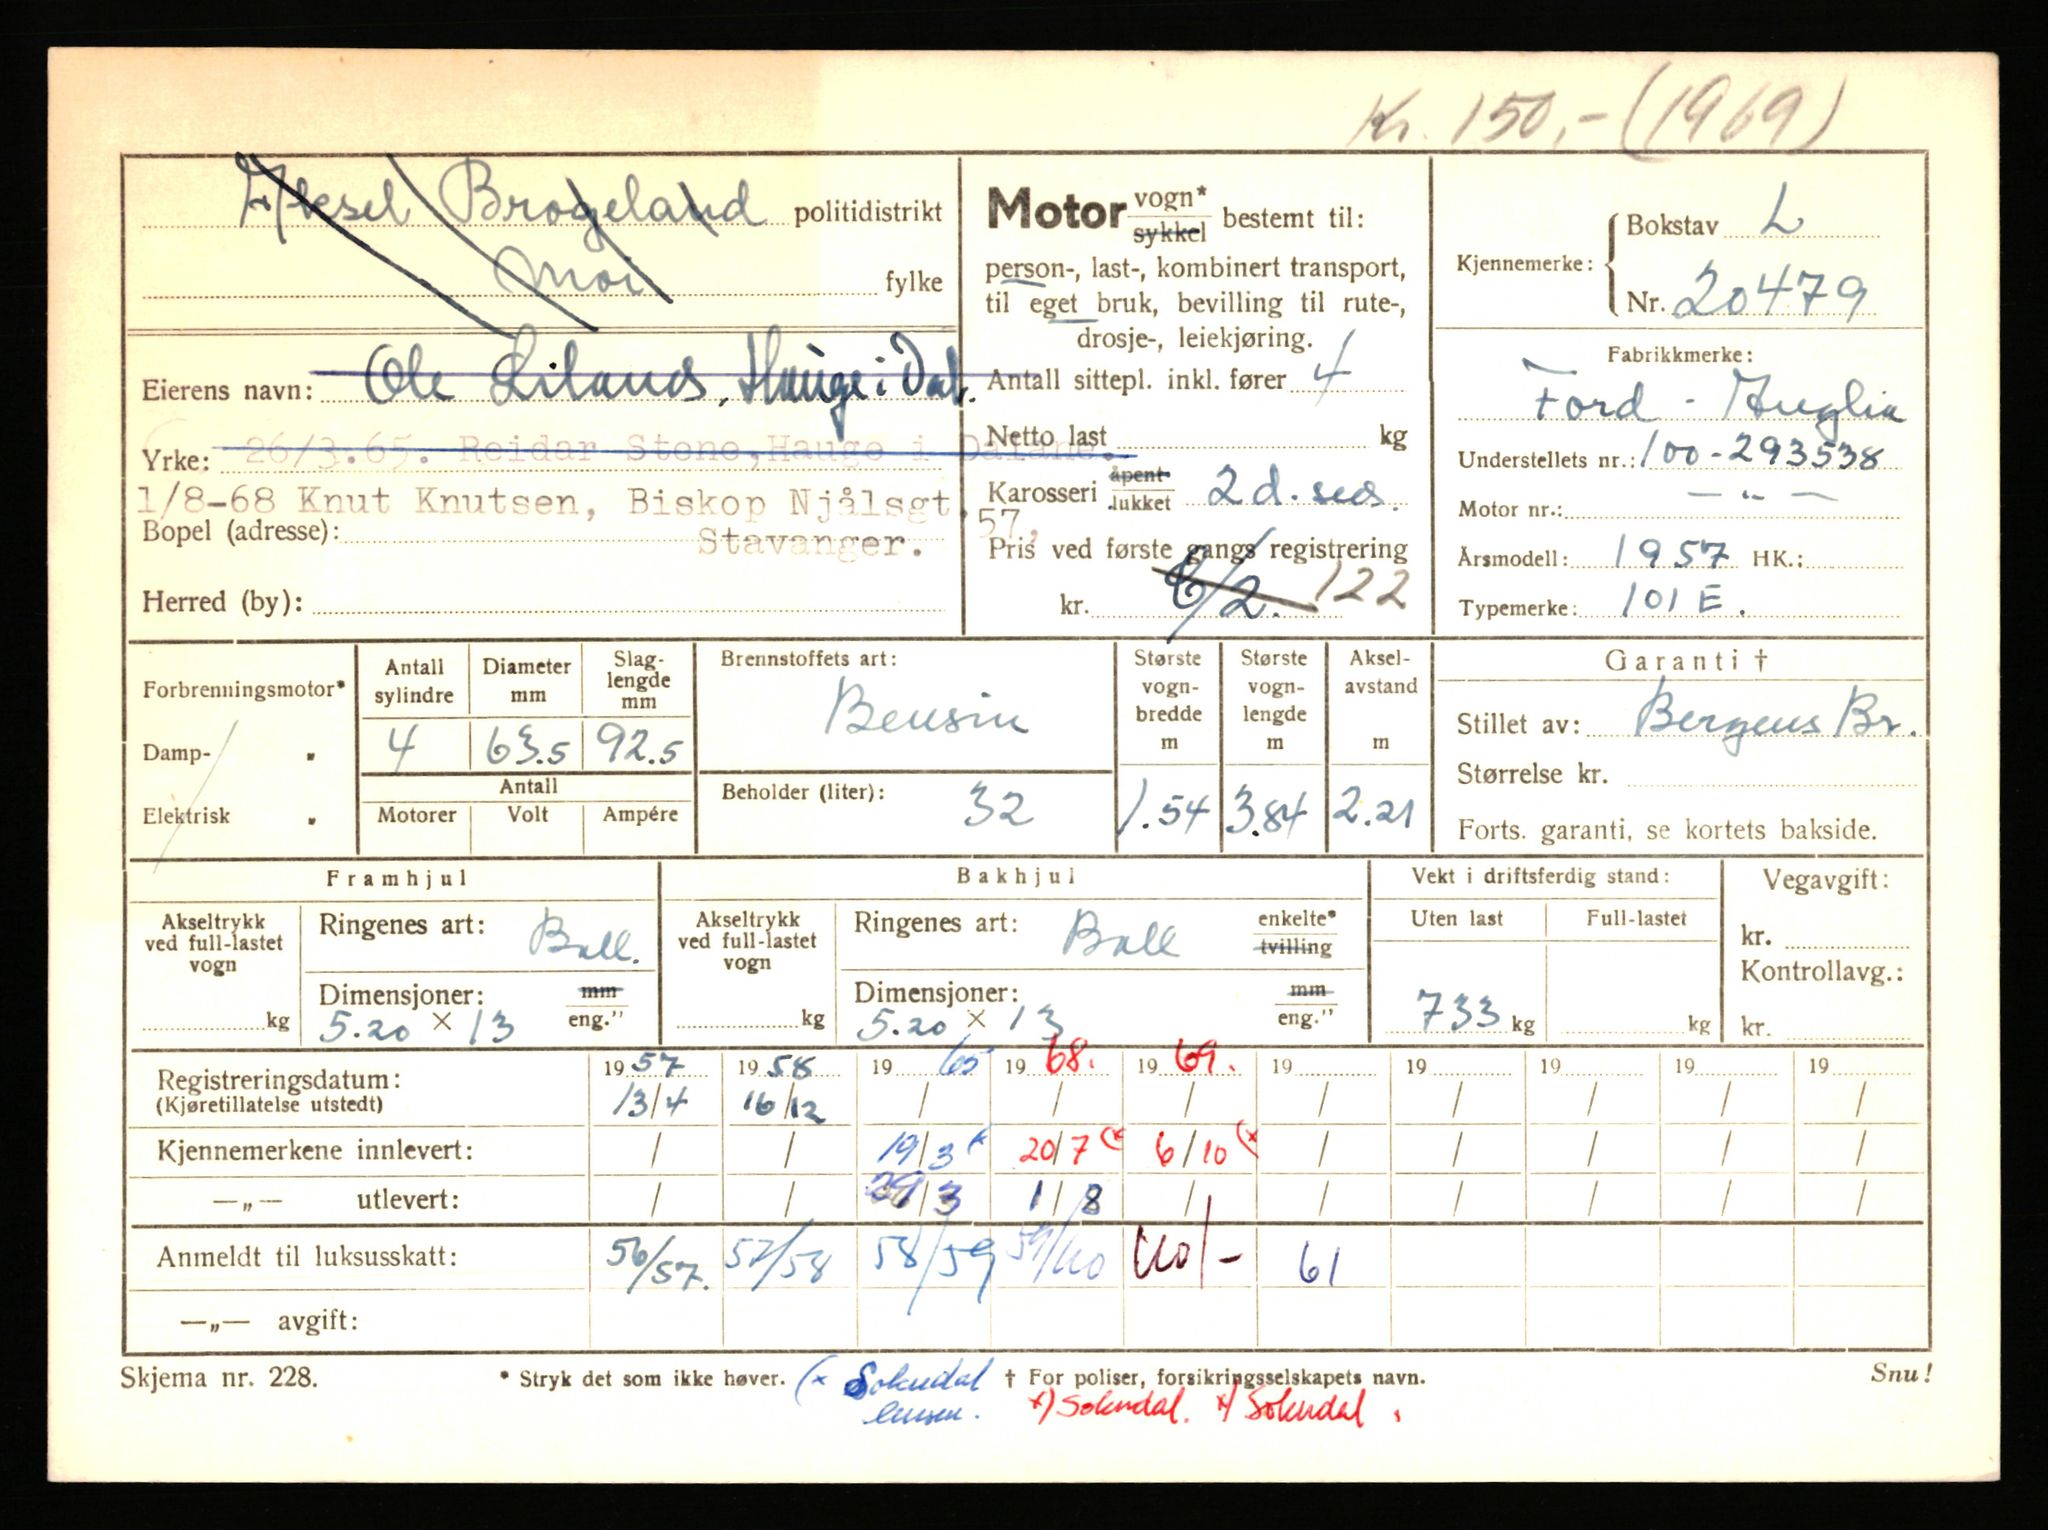 Kr. 150,- (1969)
Aksel Brogeland politidistrikt
Moi fylke
Eierens navn: Ole Liland, Hauge i Dal.
Yrke: 26/3.65. Reidar Stene, Hauge i Dalane.
1/8-68 Knut Knutsen, Biskop Njålsgt. 57,
Bopel (adresse): Stavanger.
Herred (by):
Motor vogn* sykkel bestemt til:
person-, last-, kombinert transport,
til eget bruk, bevilling til rute-,
drosje-, leiekjøring.
Antall sittepl. inkl. fører 4
Netto last kg
Karosseri åpent lukket 2 d. sed.
Pris ved første gangs registrering
kr. 6/2. 122
Kjennemerke: Bokstav L
Nr. 20479
Fabrikkmerke:
Ford - Anglia
Understellets nr.: 100-293538
Motor nr.: — " —
Årsmodell: 1957 HK.:
Typemerke: 101 E.
Forbrenningsmotor*
Damp- "
Elektrisk "
Antall sylindre 4
Diameter mm 63.5
Slaglengde mm 92.5
Antall
Motorer Volt Ampére
Brennstoffets art:
Bensin
Beholder (liter): 32
Største vogn-bredde m 1.54
Største vogn-lengde m 3.84
Aksel-avstand m 2.21
Garanti †
Stillet av: Bergens Br.
Størrelse kr.
Forts. garanti, se kortets bakside.
Framhjul
Akseltrykk ved full-lastet vogn kg
Ringenes art: Ball.
Dimensjoner: mm eng."
5.20 × 13
Bakhjul
Akseltrykk ved full-lastet vogn kg
Ringenes art: Ball enkelte* tvilling
Dimensjoner: mm eng."
5.20 × 13
Vekt i driftsferdig stand:
Uten last Full-lastet
733 kg kg
Vegavgift:
kr.
Kontrollavg.:
kr.
Registreringsdatum: 1957 1958 19 65 19 68. 19 69. 19 19 19 19 19
(Kjøretillatelse utstedt) 13/4 16/12 / / / / / / / /
Kjennemerkene innlevert: / / 19/3 (x 20/7 (x 6/10 (x / / / / /
—„— utlevert: / / 29/3 1/8 / / / / / /
Anmeldt til luksusskatt: 56/57. 57/58 58/59 59/60 60/- 61
—„— avgift:
Skjema nr. 228.
* Stryk det som ikke høver.
† For poliser, forsikringsselskapets navn.
Snu!
(x Sokndal
lensm.
x) Sokndal. x) Sokndal.